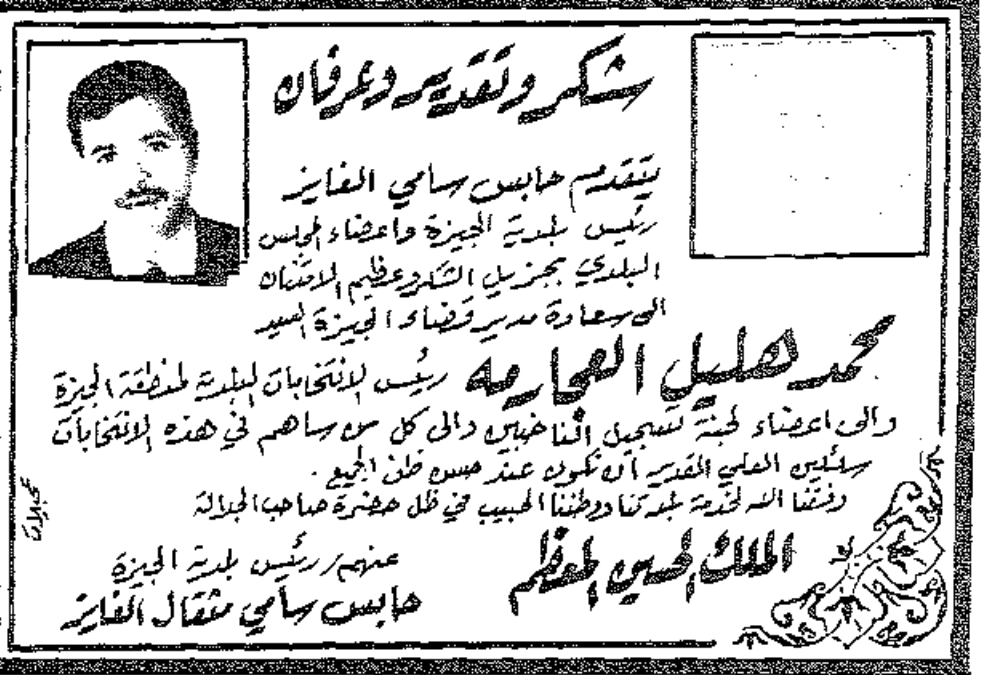 شكر وتقدير وعرفان
يتقدم حابس سامي الفايز
رئيس بلدية الجيزة واعضاء المجلس
البلدي بجزيل الشكر وعظيم الامتنان
الى سعادة مدير قضاء الجيزة السيد
محمد هليل العجارمه رئيس الانتخابات البلدية لمنطقة الجيزة
والى اعضاء لجنة تسجيل الناخبين والى كل من ساهم في هذه الانتخابات
سائلين العلي القدير أن نكون عند حسن ظن الجميع .
وفقنا الله لخدمة بلدتنا ووطننا الحبيب في ظل حضرة صاحب الجلالة
الملك الحسين المعظم
عنهم / رئيس بلدية الجيزة
حابس سامي مثقال الفايز